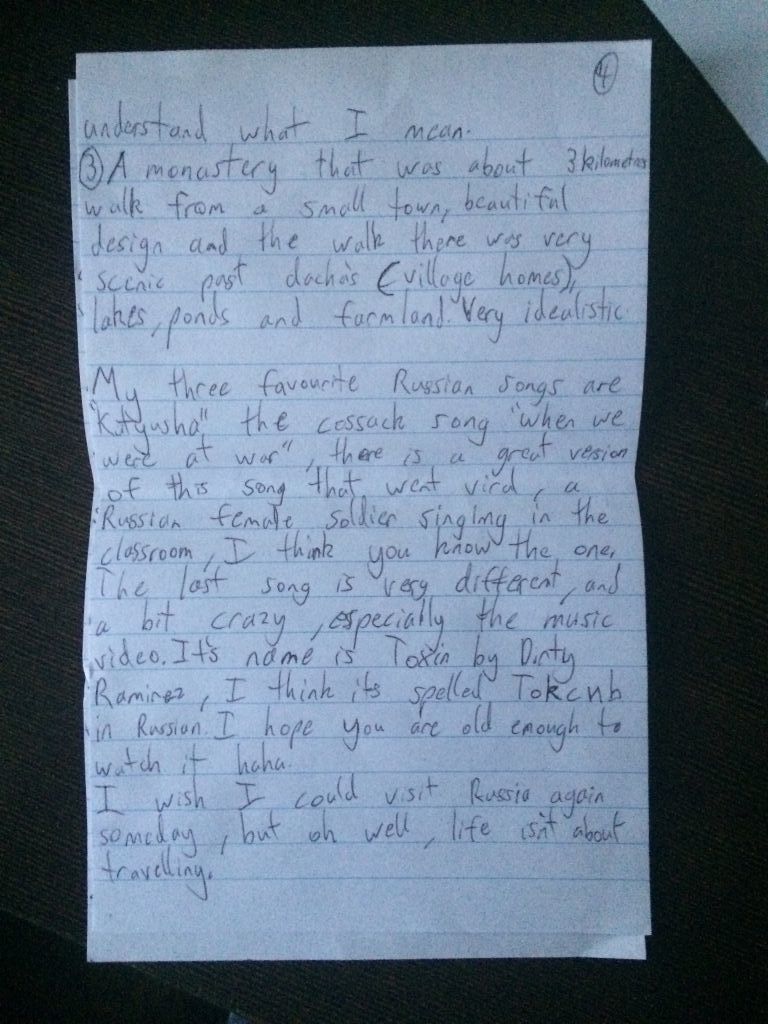 4
understand what I mean.
3 A monastery that was about 3 kilometres
walk from a small town, beautiful
design and the walk there was very
scenic past dacha's (village homes),
lakes, ponds and farmland. Very idealistic
My three favourite Russian songs are
"Katyusha" the cossack song "when we
were at war", there is a great version
of this song that went viral, a
Russian female soldier singing in the
classroom, I think you know the one.
The last song is very different, and
a bit crazy, especially the music
video. It's name is Toxin by Dirty
Ramirez, I think its spelled Tokcnb
in Russian. I hope you are old enough to
watch it haha.
I wish I could visit Russia again
someday, but oh well, life isn't about
travelling.